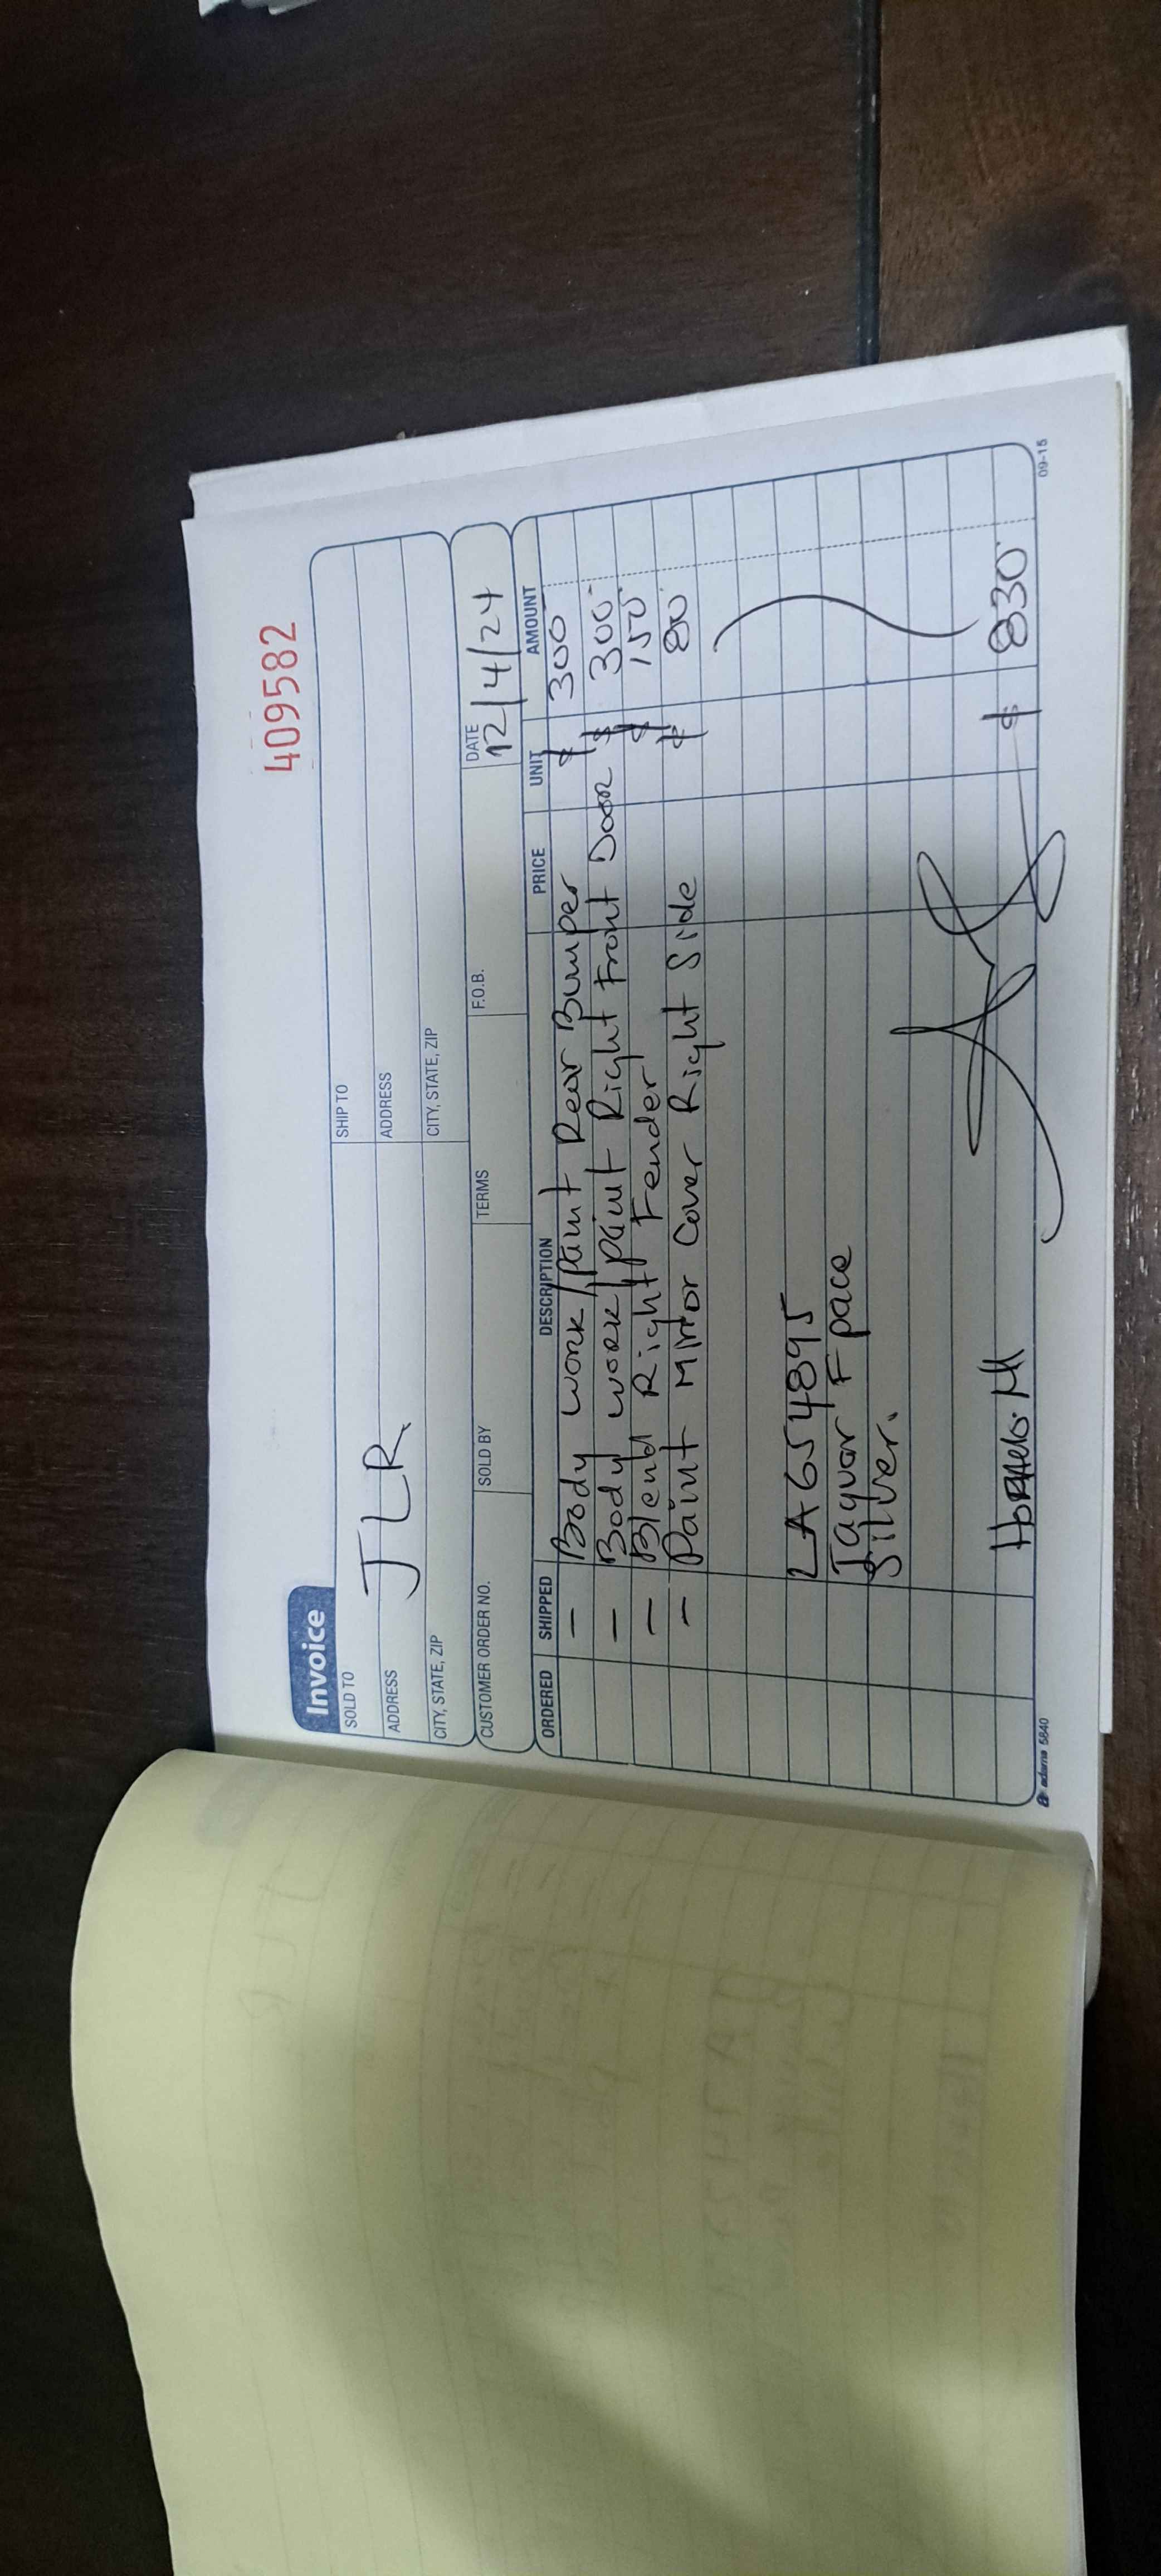 409582
Invoice
SOLD TO JLR. SHIP TO
ADDRESS ADDRESS
CITY, STATE, ZIP CITY, STATE, ZIP
CUSTOMER ORDER NO. SOLD BY TERMS F.O.B. DATE 12/4/24
ORDERED SHIPPED DESCRIPTION PRICE UNIT AMOUNT
- Body work/paint Rear Bumper $ 300
- Body work/paint Right Front Door $ 300
- Blend Right Fender $ 150
- Paint Mirror Cover Right Side $ 80
LA654895
Jaguar F pace
Silver.
$ 830
adams 5840 09-15